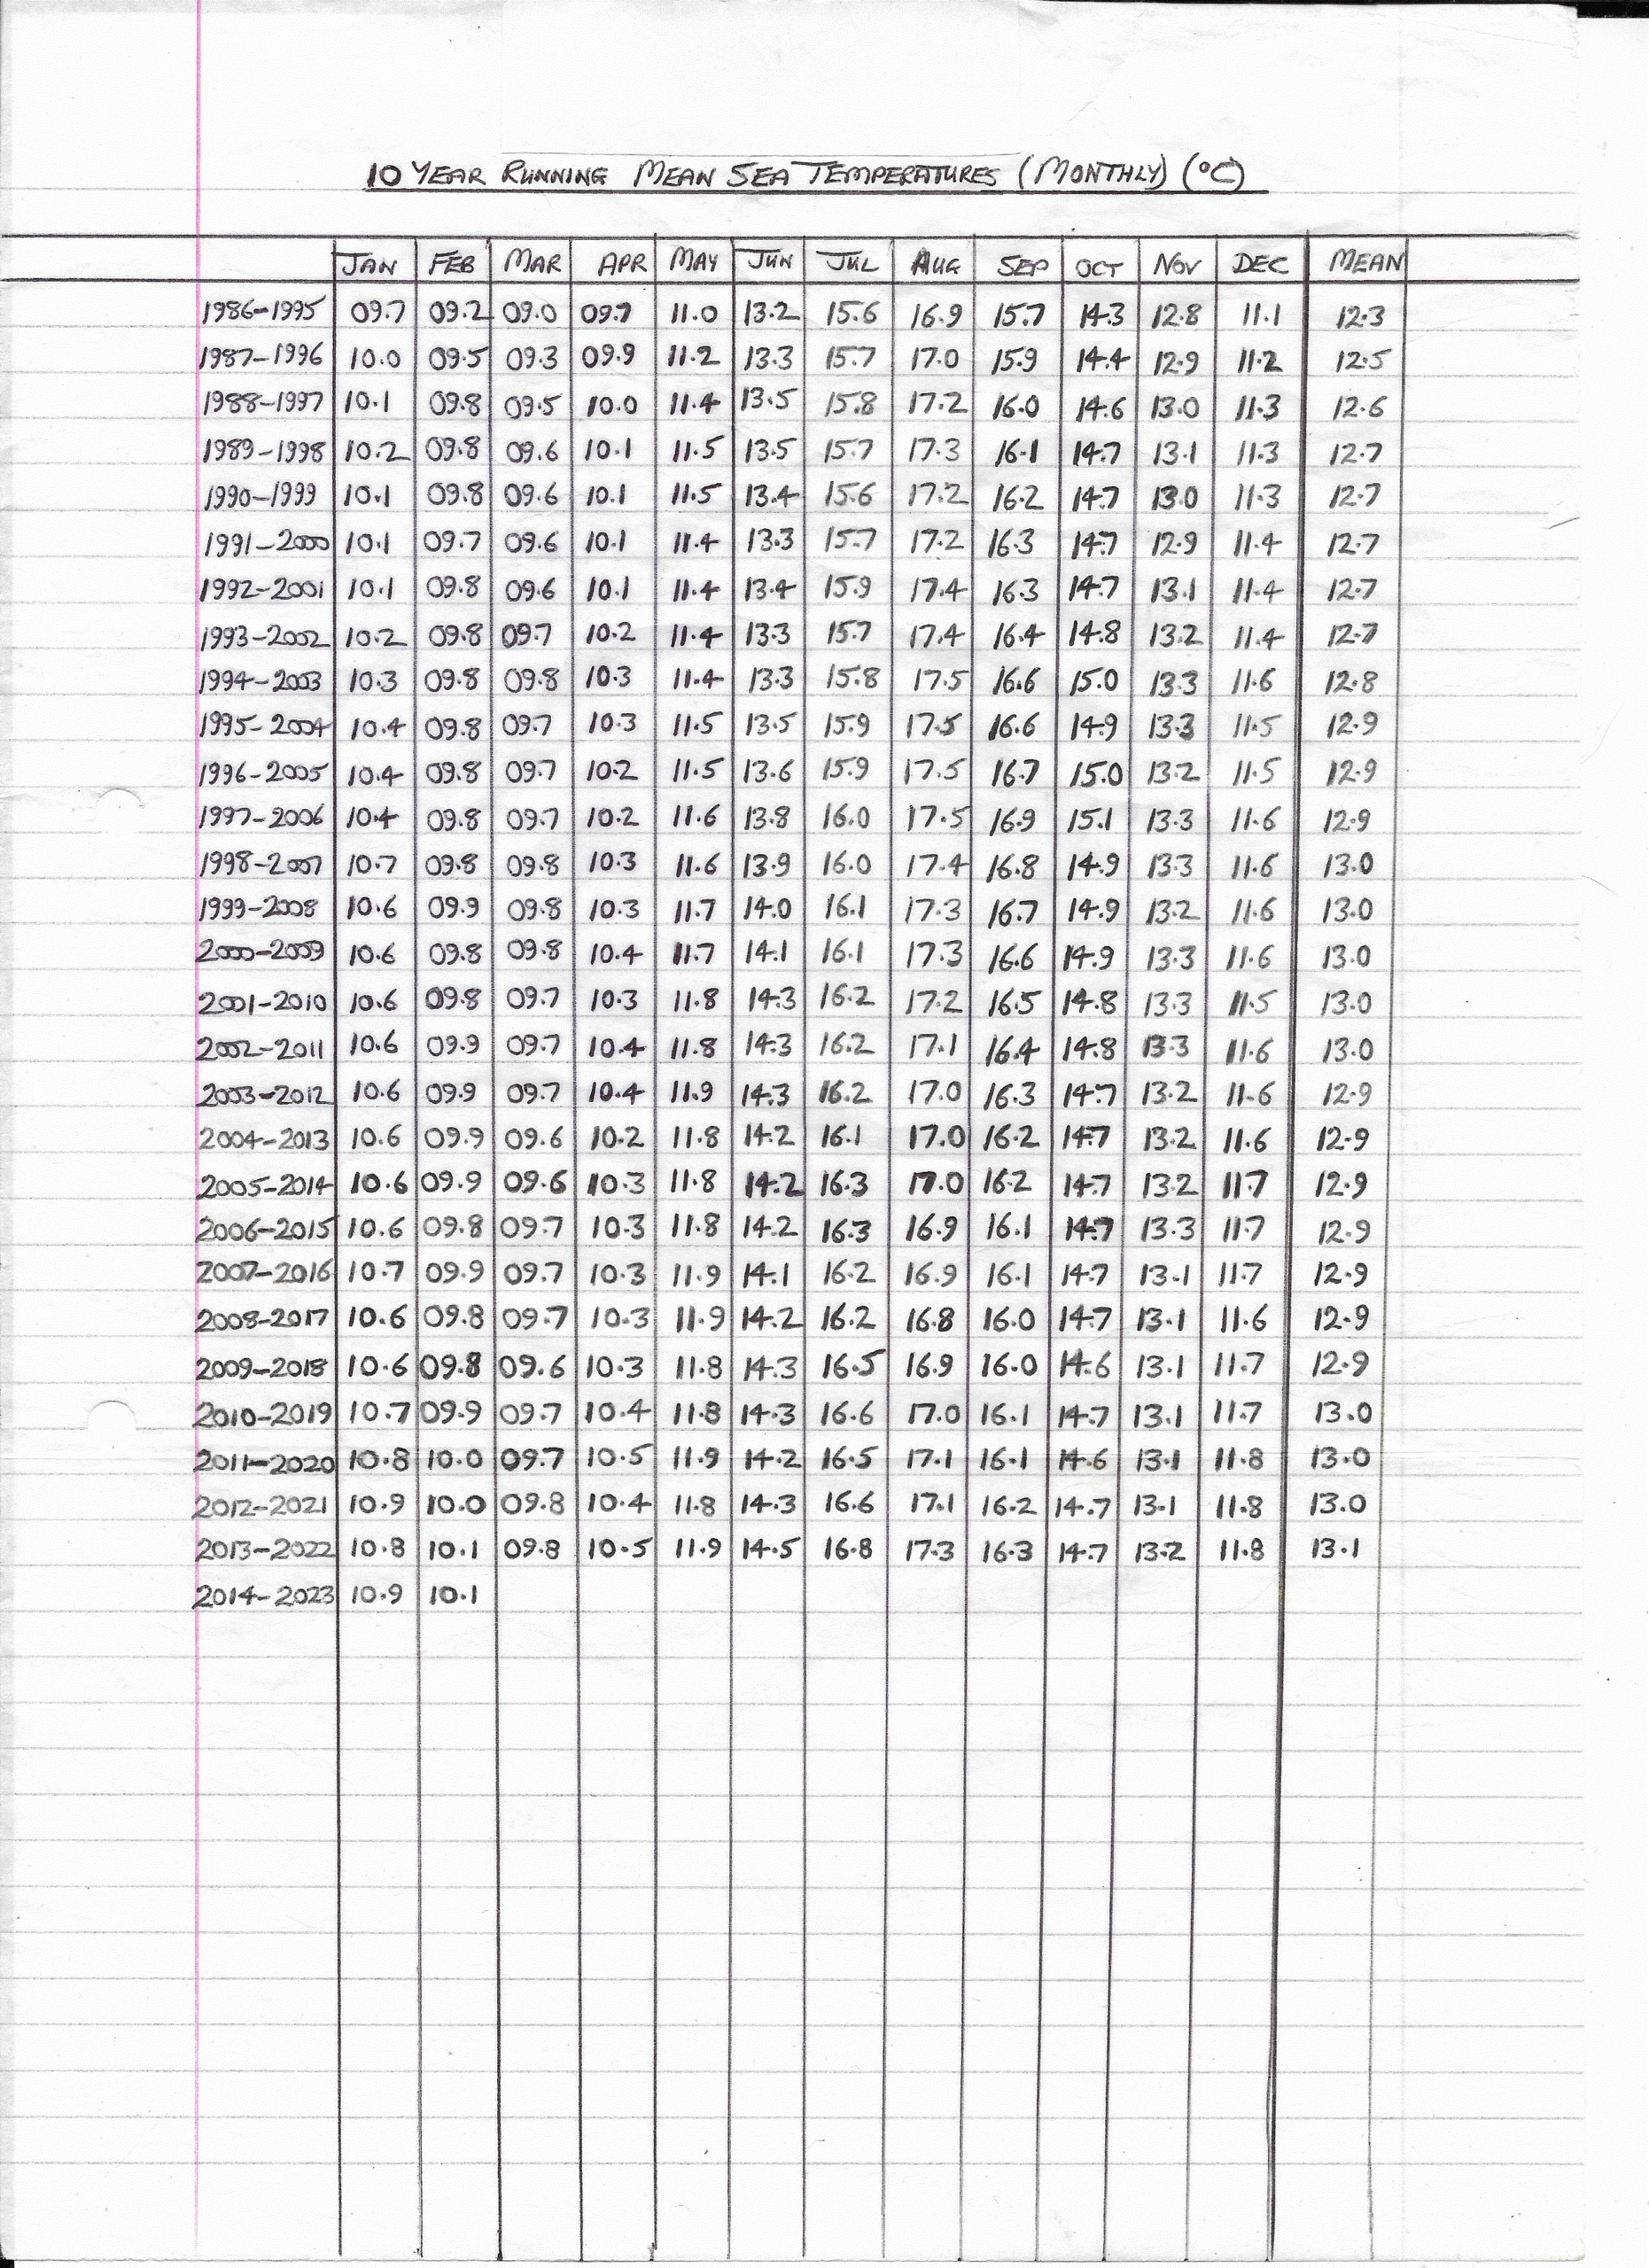 10 YEAR RUNNING MEAN SEA TEMPERATURES (MONTHLY) (°C)
JAN FEB MAR APR MAY JUN JUL AUG SEP OCT NOV DEC MEAN
1986-1995 09.7 09.2 09.0 09.7 11.0 13.2 15.6 16.9 15.7 14.3 12.8 11.1 12.3
1987-1996 10.0 09.5 09.3 09.9 11.2 13.3 15.7 17.0 15.9 14.4 12.9 11.2 12.5
1988-1997 10.1 09.8 09.5 10.0 11.4 13.5 15.8 17.2 16.0 14.6 13.0 11.3 12.6
1989-1998 10.2 09.8 09.6 10.1 11.5 13.5 15.7 17.3 16.1 14.7 13.1 11.3 12.7
1990-1999 10.1 09.8 09.6 10.1 11.5 13.4 15.6 17.2 16.2 14.7 13.0 11.3 12.7
1991-2000 10.1 09.7 09.6 10.1 11.4 13.3 15.7 17.2 16.3 14.7 12.9 11.4 12.7
1992-2001 10.1 09.8 09.6 10.1 11.4 13.4 15.9 17.4 16.3 14.7 13.1 11.4 12.7
1993-2002 10.2 09.8 09.7 10.2 11.4 13.3 15.7 17.4 16.4 14.8 13.2 11.4 12.7
1994-2003 10.3 09.8 09.8 10.3 11.4 13.3 15.8 17.5 16.6 15.0 13.3 11.6 12.8
1995-2004 10.4 09.8 09.7 10.3 11.5 13.5 15.9 17.5 16.6 14.9 13.3 11.5 12.9
1996-2005 10.4 09.8 09.7 10.2 11.5 13.6 15.9 17.5 16.7 15.0 13.2 11.5 12.9
1997-2006 10.4 09.8 09.7 10.2 11.6 13.8 16.0 17.5 16.9 15.1 13.3 11.6 12.9
1998-2007 10.7 09.8 09.8 10.3 11.6 13.9 16.0 17.4 16.8 14.9 13.3 11.6 13.0
1999-2008 10.6 09.9 09.8 10.3 11.7 14.0 16.1 17.3 16.7 14.9 13.2 11.6 13.0
2000-2009 10.6 09.8 09.8 10.4 11.7 14.1 16.1 17.3 16.6 14.9 13.3 11.6 13.0
2001-2010 10.6 09.8 09.7 10.3 11.8 14.3 16.2 17.2 16.5 14.8 13.3 11.5 13.0
2002-2011 10.6 09.9 09.7 10.4 11.8 14.3 16.2 17.1 16.4 14.8 13.3 11.6 13.0
2003-2012 10.6 09.9 09.7 10.4 11.9 14.3 16.2 17.0 16.3 14.7 13.2 11.6 12.9
2004-2013 10.6 09.9 09.6 10.2 11.8 14.2 16.1 17.0 16.2 14.7 13.2 11.6 12.9
2005-2014 10.6 09.9 09.6 10.3 11.8 14.2 16.3 17.0 16.2 14.7 13.2 11.7 12.9
2006-2015 10.6 09.8 09.7 10.3 11.8 14.2 16.3 16.9 16.1 14.7 13.3 11.7 12.9
2007-2016 10.7 09.9 09.7 10.3 11.9 14.1 16.2 16.9 16.1 14.7 13.1 11.7 12.9
2008-2017 10.6 09.8 09.7 10.3 11.9 14.2 16.2 16.8 16.0 14.7 13.1 11.6 12.9
2009-2018 10.6 09.8 09.6 10.3 11.8 14.3 16.5 16.9 16.0 14.6 13.1 11.7 12.9
2010-2019 10.7 09.9 09.7 10.4 11.8 14.3 16.6 17.0 16.1 14.7 13.1 11.7 13.0
2011-2020 10.8 10.0 09.7 10.5 11.9 14.2 16.5 17.1 16.1 14.6 13.1 11.8 13.0
2012-2021 10.9 10.0 09.8 10.4 11.8 14.3 16.6 17.1 16.2 14.7 13.1 11.8 13.0
2013-2022 10.8 10.1 09.8 10.5 11.9 14.5 16.8 17.3 16.3 14.7 13.2 11.8 13.1
2014-2023 10.9 10.1